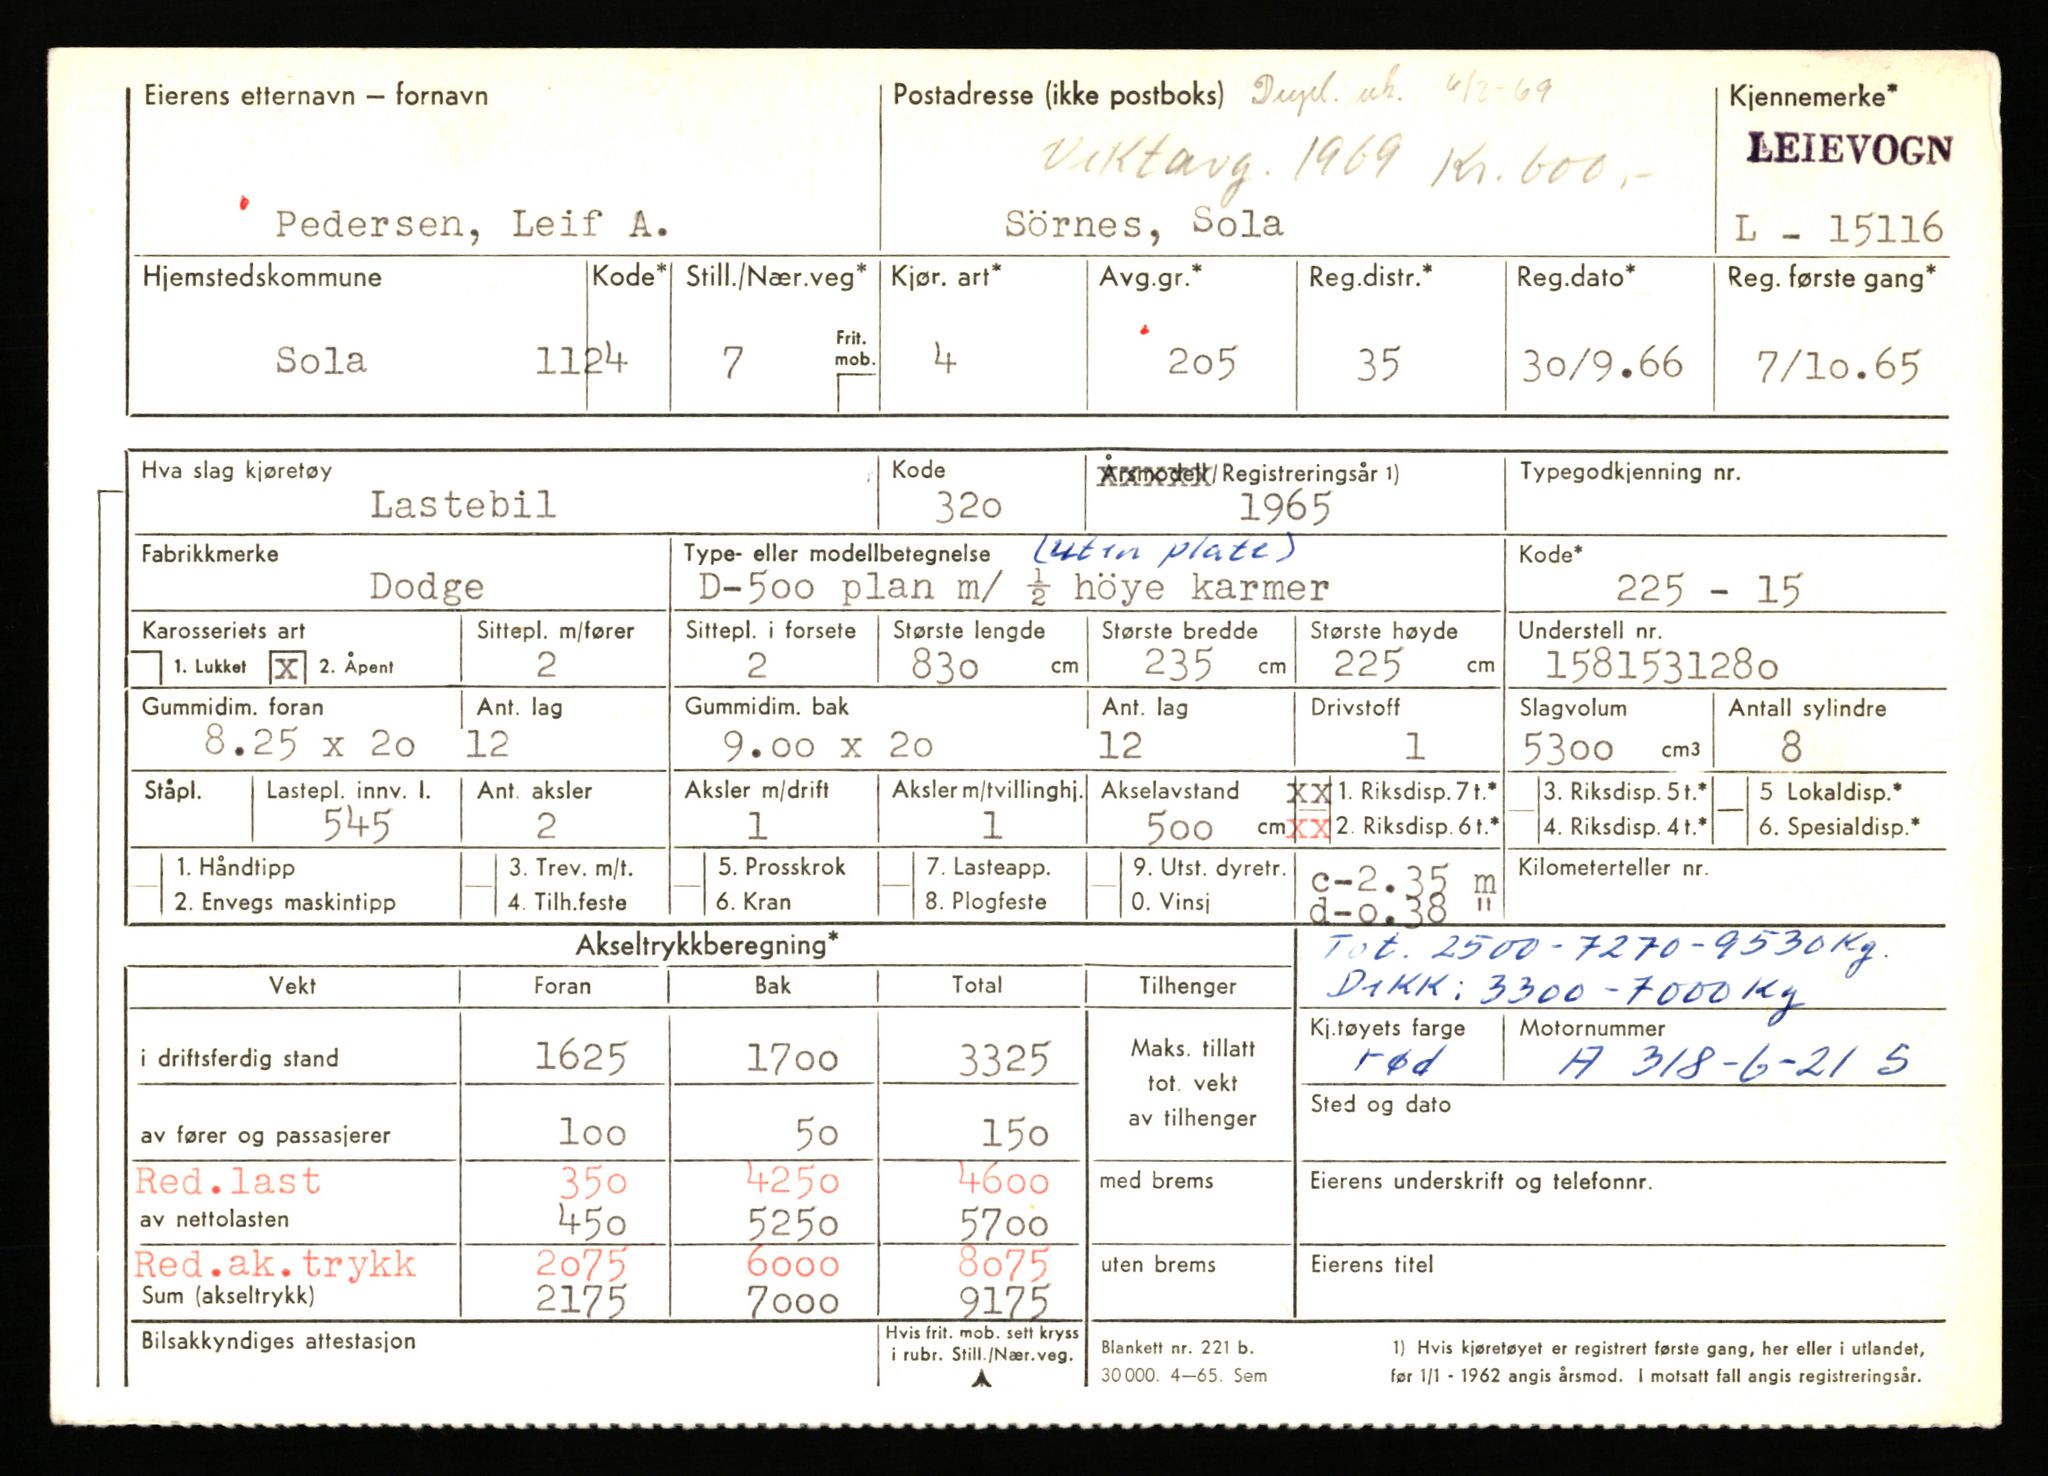 Eierens etternavn – fornavn
Postadresse (ikke postboks) Dupl. utk. 6/2-69
Kjennemerke*
LEIEVOGN
Vektavg. 1969 Kr. 600,-
Pedersen, Leif A.
Sörnes, Sola
L - 15116
Hjemstedskommune Kode* Still./Nær.veg* Kjør. art* Avg.gr.* Reg.distr.* Reg.dato* Reg. første gang*
Frit. mob.
Sola 1124 7 4 205 35 30/9.66 7/10.65
Hva slag kjøretøy Kode Årsmodell/Registreringsår 1) Typegodkjenning nr.
Lastebil 320 1965
Fabrikkmerke Type- eller modellbetegnelse (uten plate) Kode*
Dodge D-500 plan m/ ½ höye karmer 225 - 15
Karosseriets art Sittepl. m/fører Sittepl. i forsete Største lengde Største bredde Største høyde Understell nr.
1. Lukket X 2. Åpent 2 2 830 cm 235 cm 225 cm 1581531280
Gummidim. foran Ant. lag Gummidim. bak Ant. lag Drivstoff Slagvolum Antall sylindre
8.25 x 20 12 9.00 x 20 12 1 5300 cm3 8
Ståpl. Lastepl. innv. l. Ant. aksler Aksler m/drift Aksler m/tvillinghj. Akselavstand XX 1. Riksdisp. 7 t.* 3. Riksdisp. 5 t.* 5 Lokaldisp.*
545 2 1 1 500 cm XX 2. Riksdisp. 6 t.* 4. Riksdisp. 4 t.* 6. Spesialdisp.*
1. Håndtipp 3. Trev. m/t. 5. Prosskrok 7. Lasteapp. 9. Utst. dyretr. c-2.35 m Kilometerteller nr.
2. Envegs maskintipp 4. Tilh.feste 6. Kran 8. Plogfeste 0. Vinsj d-0.38 "
Akseltrykkberegning* Tot. 2500-7270-9530 Kg.
Vekt Foran Bak Total Tilhenger DeKK: 3300-7000 Kg
Kj.tøyets farge Motornummer
i driftsferdig stand 1625 1700 3325 Maks. tillatt rød A 318-6-21 5
tot. vekt
Sted og dato
av fører og passasjerer 100 50 150 av tilhenger
Red.last 350 4250 4600 med brems Eierens underskrift og telefonnr.
av nettolasten 450 5250 5700
Red.ak.trykk 2075 6000 8075 uten brems Eierens titel
Sum (akseltrykk) 2175 7000 9175
Bilsakkyndiges attestasjon
Hvis frit. mob. sett kryss
i rubr. Still./Nær.veg.
Blankett nr. 221 b.
30 000. 4–65. Sem
1) Hvis kjøretøyet er registrert første gang, her eller i utlandet,
før 1/1 - 1962 angis årsmod. I motsatt fall angis registreringsår.